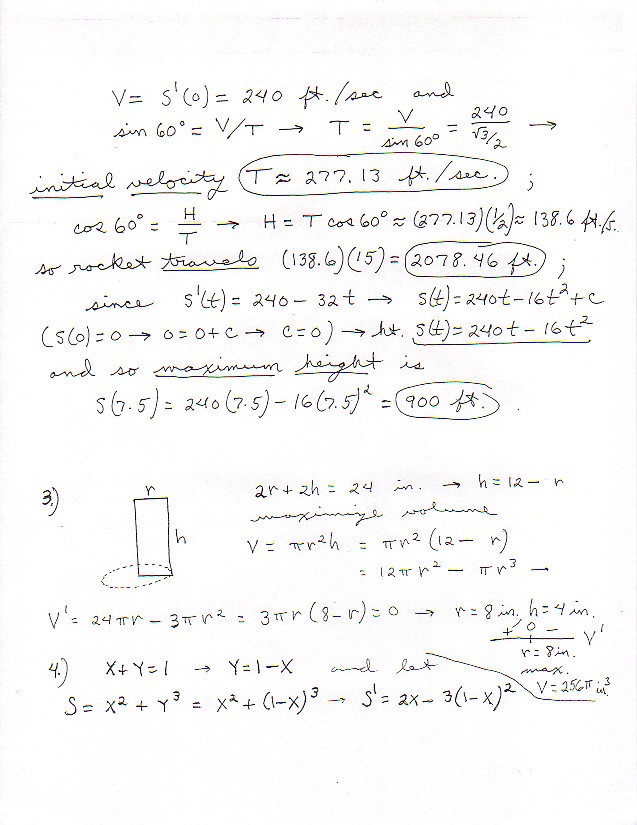 V = S'(0) = 240 ft./sec and
sin 60° = V/T → T = V/sin 60° = 240/(√3/2) →
initial velocity T ≈ 277.13 ft./sec. ;
cos 60° = H/T → H = T cos 60° ≈ (277.13)(1/2) ≈ 138.6 ft./s.
so rocket travels (138.6)(15) = 2078.46 ft. ;
since S'(t) = 240 - 32t → S(t) = 240t - 16t² + c
(S(0) = 0 → 0 = 0 + c → c = 0) → ht. S(t) = 240t - 16t²
and so maximum height is
S(7.5) = 240(7.5) - 16(7.5)² = 900 ft. .
3.) r h 2r + 2h = 24 in. → h = 12 - r
maximize volume
V = πr²h = πr²(12 - r)
= 12πr² - πr³ →
V' = 24πr - 3πr² = 3πr(8 - r) = 0 → r = 8 in. h = 4 in.
+ 0 - V'
r = 8 in.
max.
V = 256π in.³
4.) X + Y = 1 → Y = 1 - X and let
S = X² + Y³ = X² + (1-X)³ → S' = 2X - 3(1-X)²